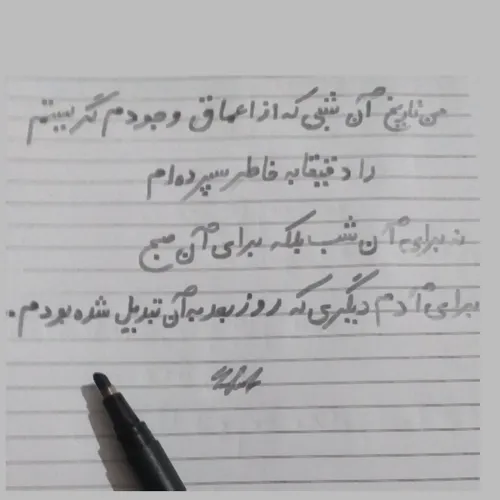 من تاریخ آن شبی که از اعماق وجودم گریستم
را دقیقا به خاطر سپرده‌ام
نه برای آن شب بلکه برای آن صبح
برای آدم دیگری که روز بعد به آن تبدیل شده بودم.